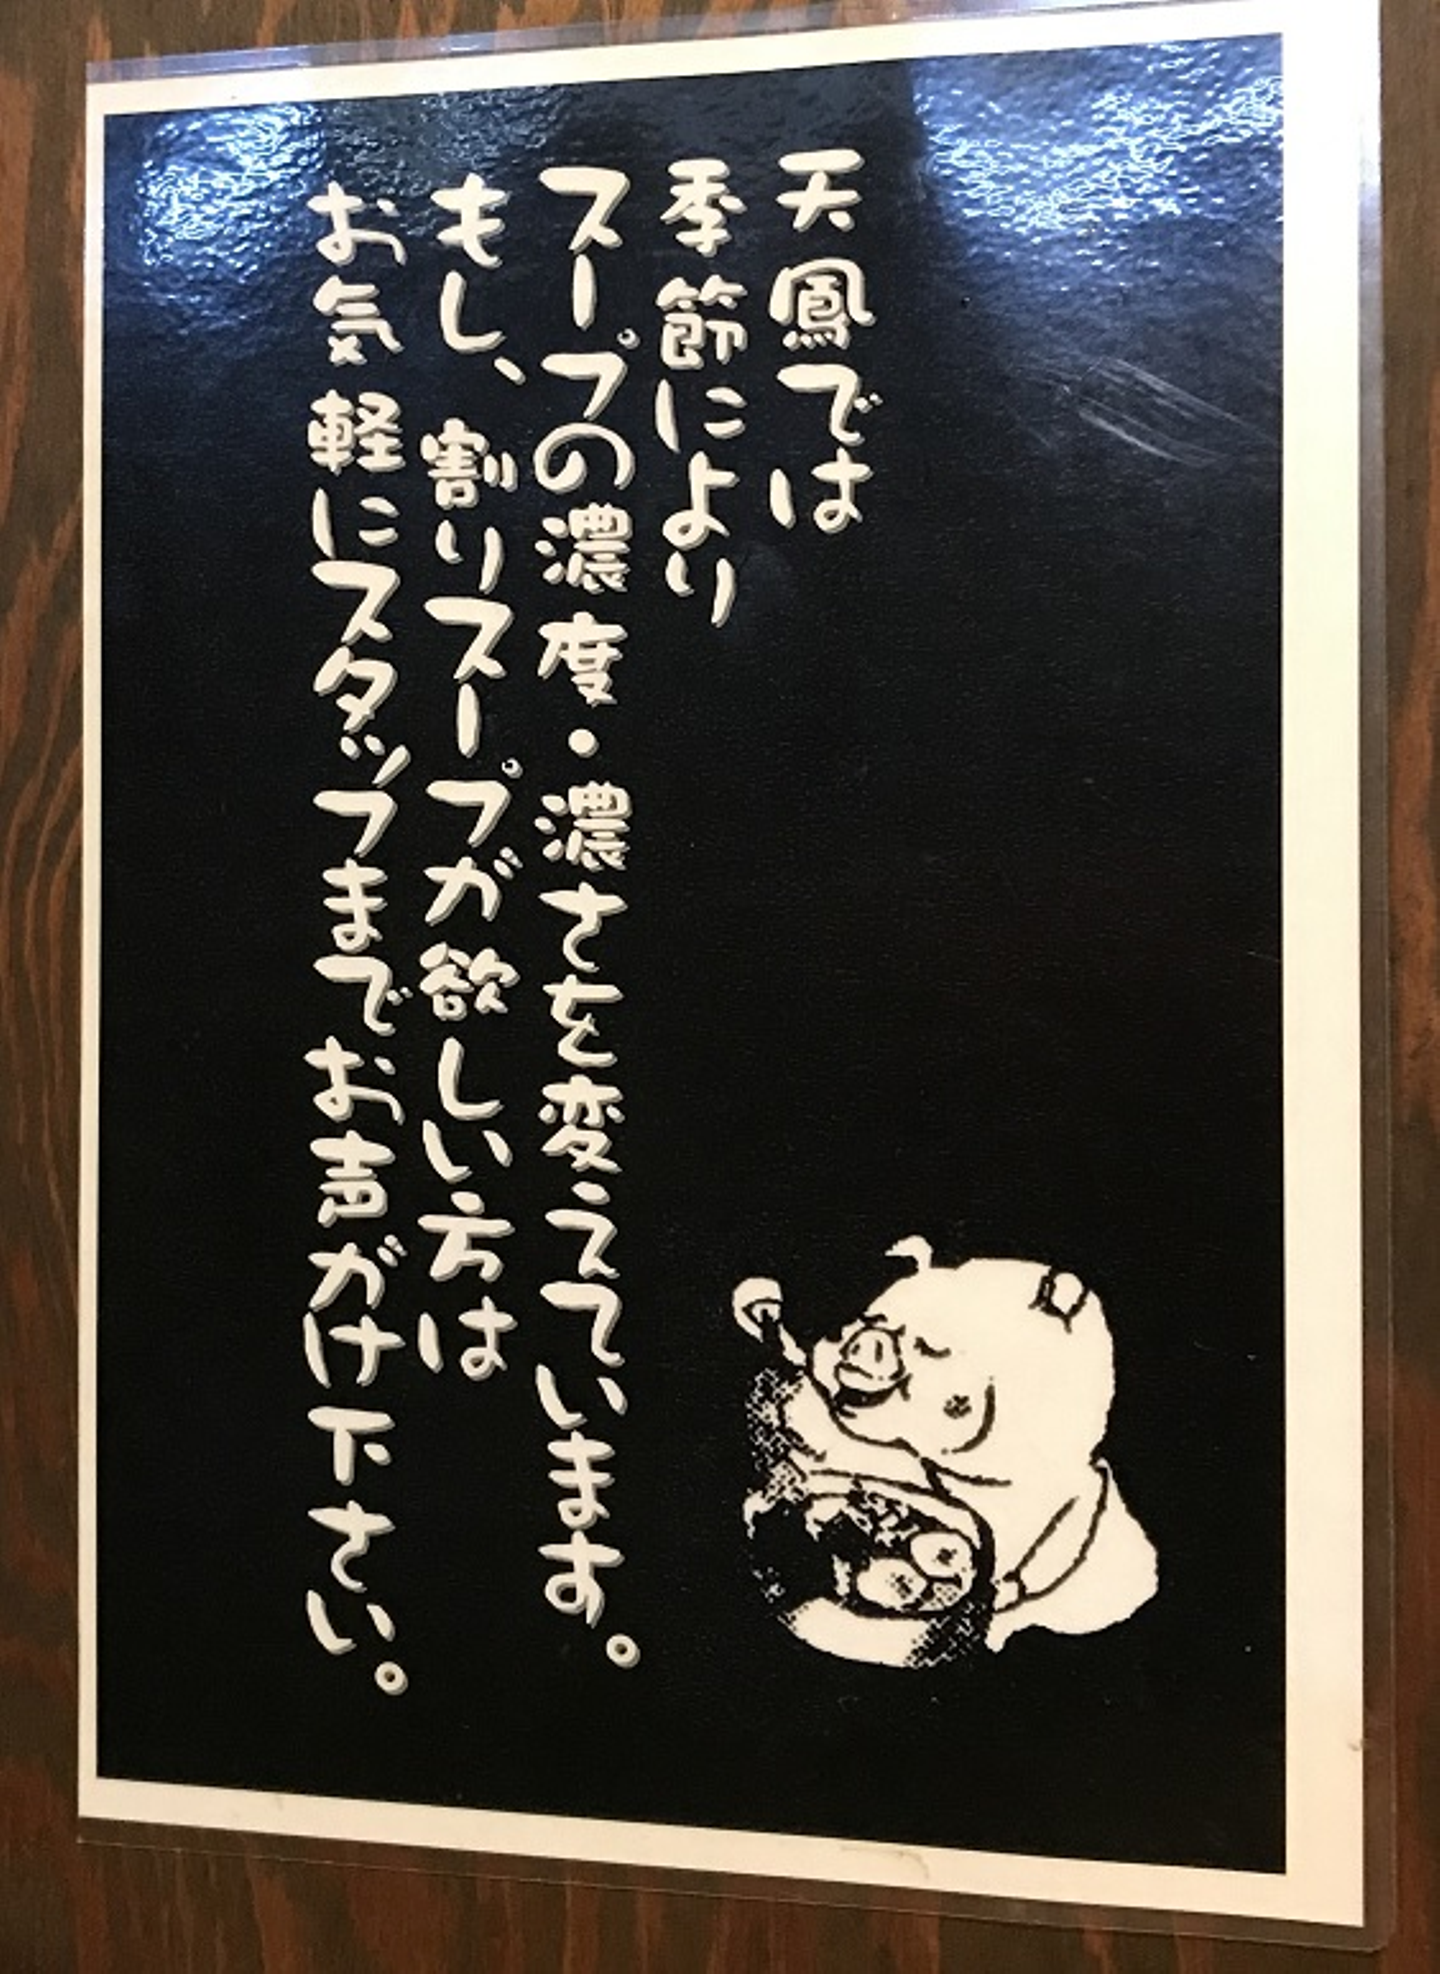 天鳳では
季節により
スープの濃度・濃さを変えています。
もし、割りスープが欲しい方は
お気軽にスタッフまでお声がけ下さい。